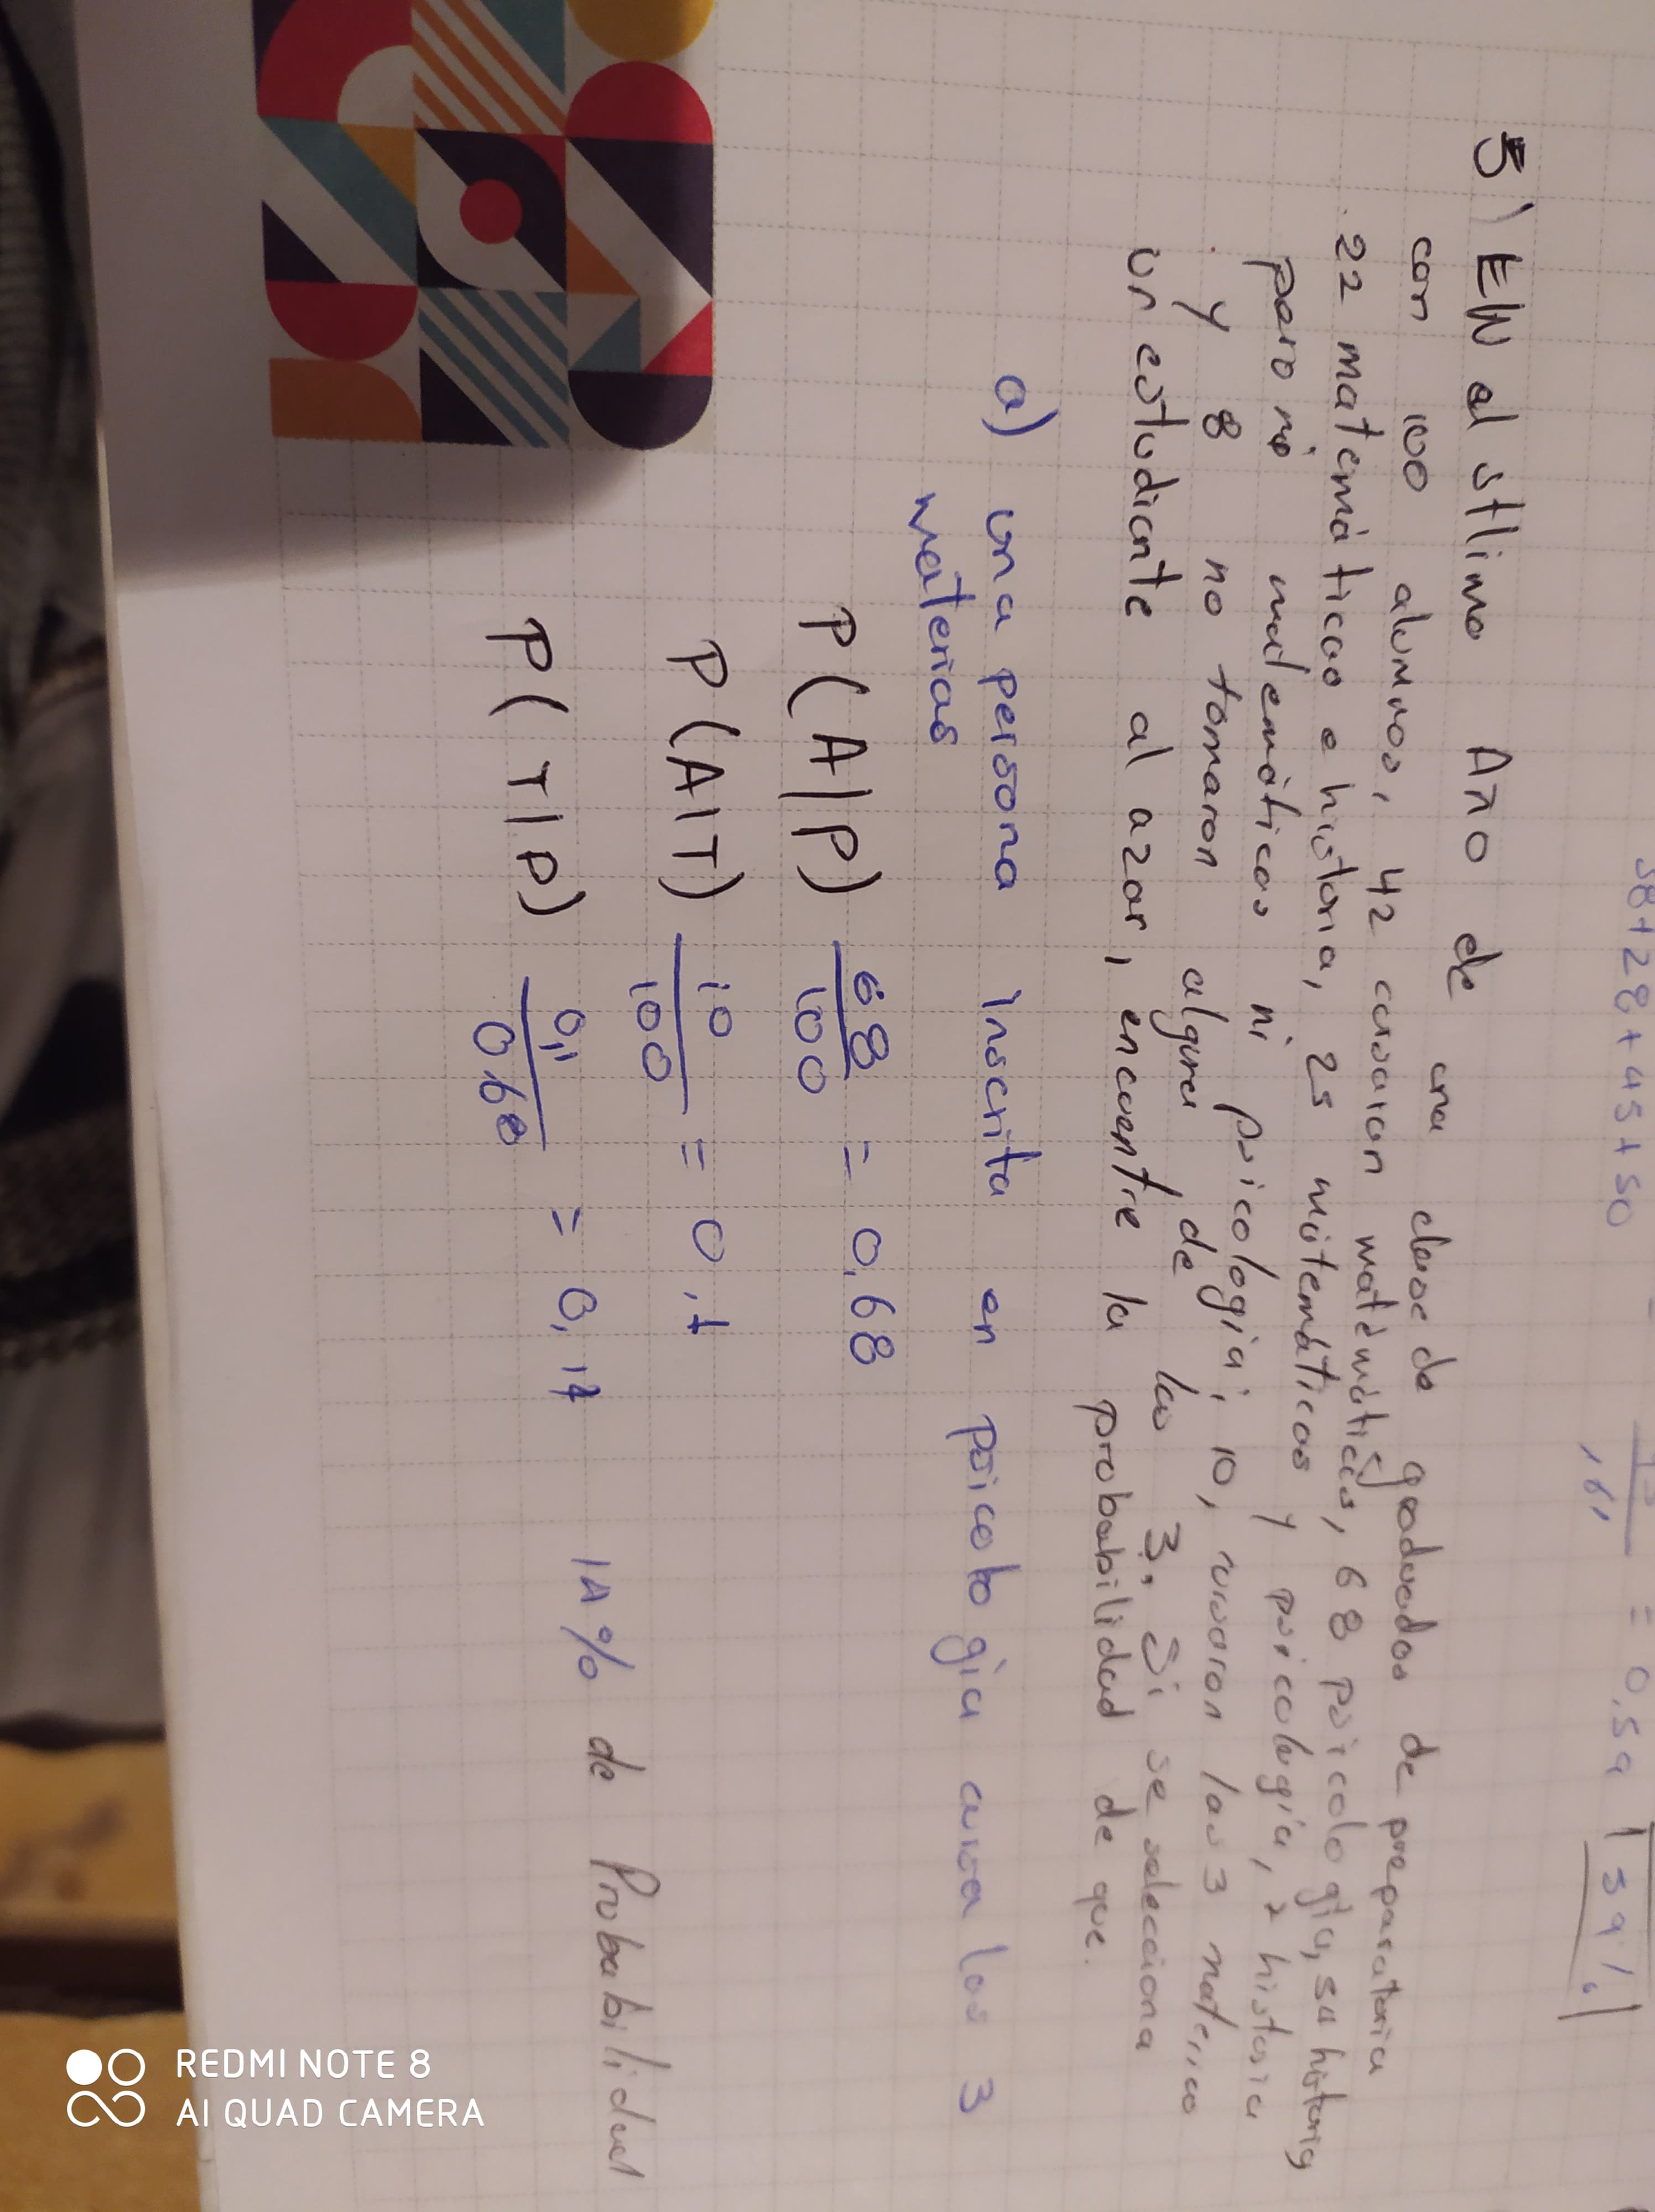 38+28+45+50
= 0,59 39%
5) EN el utlimo Año de una clase de graduados de preparatoria
con 100 alumnos, 42 cursaron matemáticas, 68 psicología, 54 historia
22 matemáticas e historia, 25 matemáticas y psicología, 7 historia
pero no matemáticas ni psicología; 10, cursaron las 3 materias
y 8 no tomaron alguna de las 3, Si se selecciona
un estudiante al azar, encuentre la probabilidad de que.
a) una persona inscrita en psicologia cursa las 3
materias
P(A|P) 68/100 = 0,68
P(A|T) 10/100 = 0,1
P(T|P) 0,1/0,68 = 0,14 14% de Probabilidad
REDMI NOTE 8
AI QUAD CAMERA